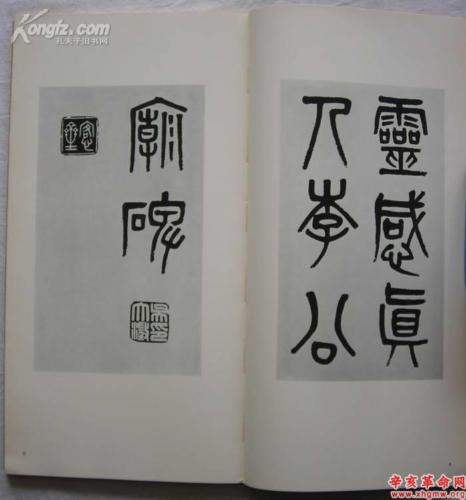 Kongfz.com
孔夫子旧书网
靈感眞
人李公
廟碑
吳印大澂
辛亥革命网
www.xhgmw.org